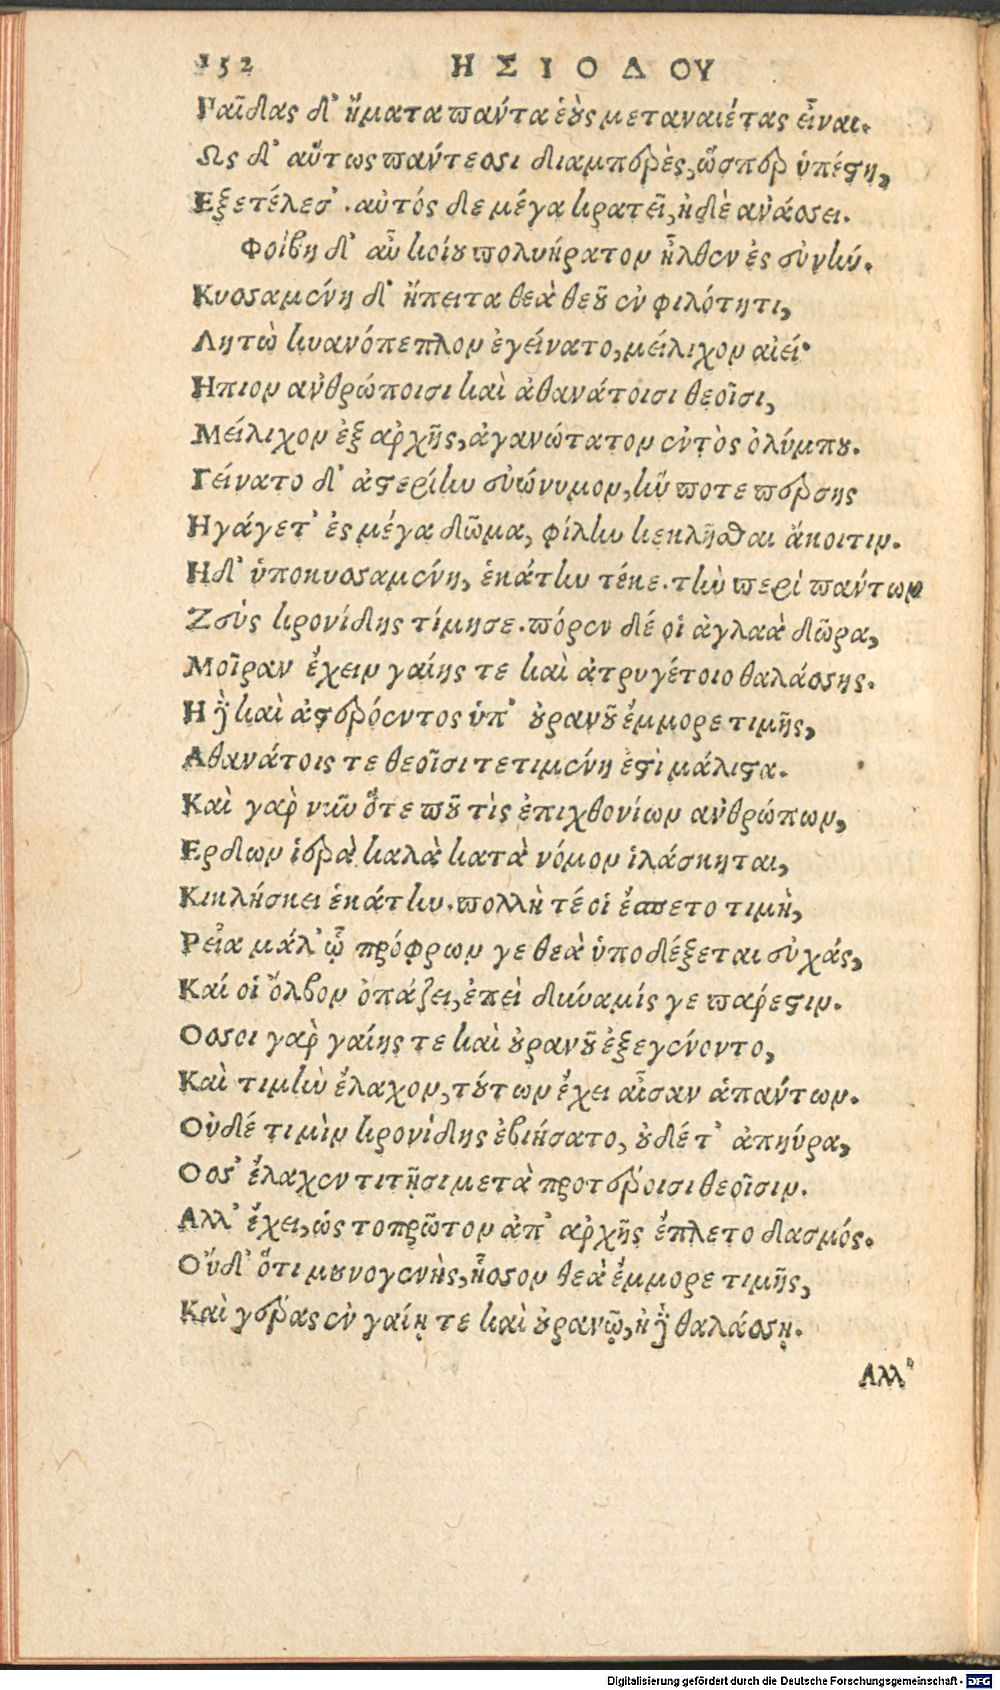 152 ΗΣΙΟΔΟΥ
Γαῖδας δ' ἤματα πάντα ἑοὺς μεταναιέτας εἶναι.
Ως δ' αὔτως πάντεσσι διαμπερὲς, ὥσπερ ὑπέστη,
Εξετέλεσσ'. αὐτός δε μέγα κρατεῖ, ἠδὲ ἀνάσσει.
Φοίβη δ' αὖ κοίου πολυήρατον ἦλθεν ἐς εὐνήν.
Κυσσαμένη δ' ἤπειτα θεὰ θεοῦ ἐν φιλότητι,
Λητὼ κυανόπεπλον ἐγείνατο, μείλιχον αἰεί·
Ηπιον ἀνθρώποισι καὶ ἀθανάτοισι θεοῖσι,
Μείλιχον ἐξ ἀρχῆς, ἀγανώτατον ἐντὸς ὀλύμπου.
Γείνατο δ' ἀστερίην εὐώνυμον, ἥν ποτε πέρσης
Ηγάγετ' ἐς μέγα δῶμα, φίλην κεκλῆσθαι ἄκοιτιν.
Ηδ' ὑποκυσσαμένη, ἑκάτην τέκε. τὴν περὶ πάντων
Ζεὺς κρονίδης τίμησε. πόρεν δέ οἱ ἀγλαὰ δῶρα,
Μοῖραν ἔχειν γαίης τε καὶ ἀτρυγέτοιο θαλάσσης.
Η δὲ καὶ ἀστερόεντος ὑπ' οὐρανοῦ ἔμμορε τιμῆς,
Αθανάτοις τε θεοῖσι τετιμένη ἐστὶ μάλιστα.
Καὶ γὰρ νῦν ὅτε ποῦ τὶς ἐπιχθονίων ἀνθρώπων,
Ερδων ἱερὰ καλὰ κατὰ νόμον ἱλάσκηται,
Κικλήσκει ἑκάτην. πολλὴ τέ οἱ ἕσπετο τιμὴ,
Ρεῖα μάλ' ᾧ πρόφρων γε θεὰ ὑποδέξεται εὐχάς,
Καί οἱ ὄλβον ὀπάζει, ἐπεὶ δύναμίς γε πάρεστιν.
Οσσοι γὰρ γαίης τε καὶ οὐρανοῦ ἐξεγένοντο,
Καὶ τιμὴν ἔλαχον, τούτων ἔχει αἶσαν ἁπάντων.
Οὐδέ τι μὶν κρονίδης ἐβιήσατο, οὐδέ τ' ἀπηύρα,
Οσσ' ἔλαχεν τιτῆσι μετὰ προτέροισι θεοῖσιν.
Αλλ' ἔχει, ὡς τοπρῶτον ἀπ' ἀρχῆς ἔπλετο δασμός.
Οὔδ' ὅτι μουνογενὴς, ἧσσον θεὰ ἔμμορε τιμῆς,
Καὶ γέρας ἐν γαίῃ τε καὶ οὐρανῷ, ἠδὲ θαλάσσῃ.
Αλλ'
Digitalisierung gefördert durch die Deutsche Forschungsgemeinschaft - DFG